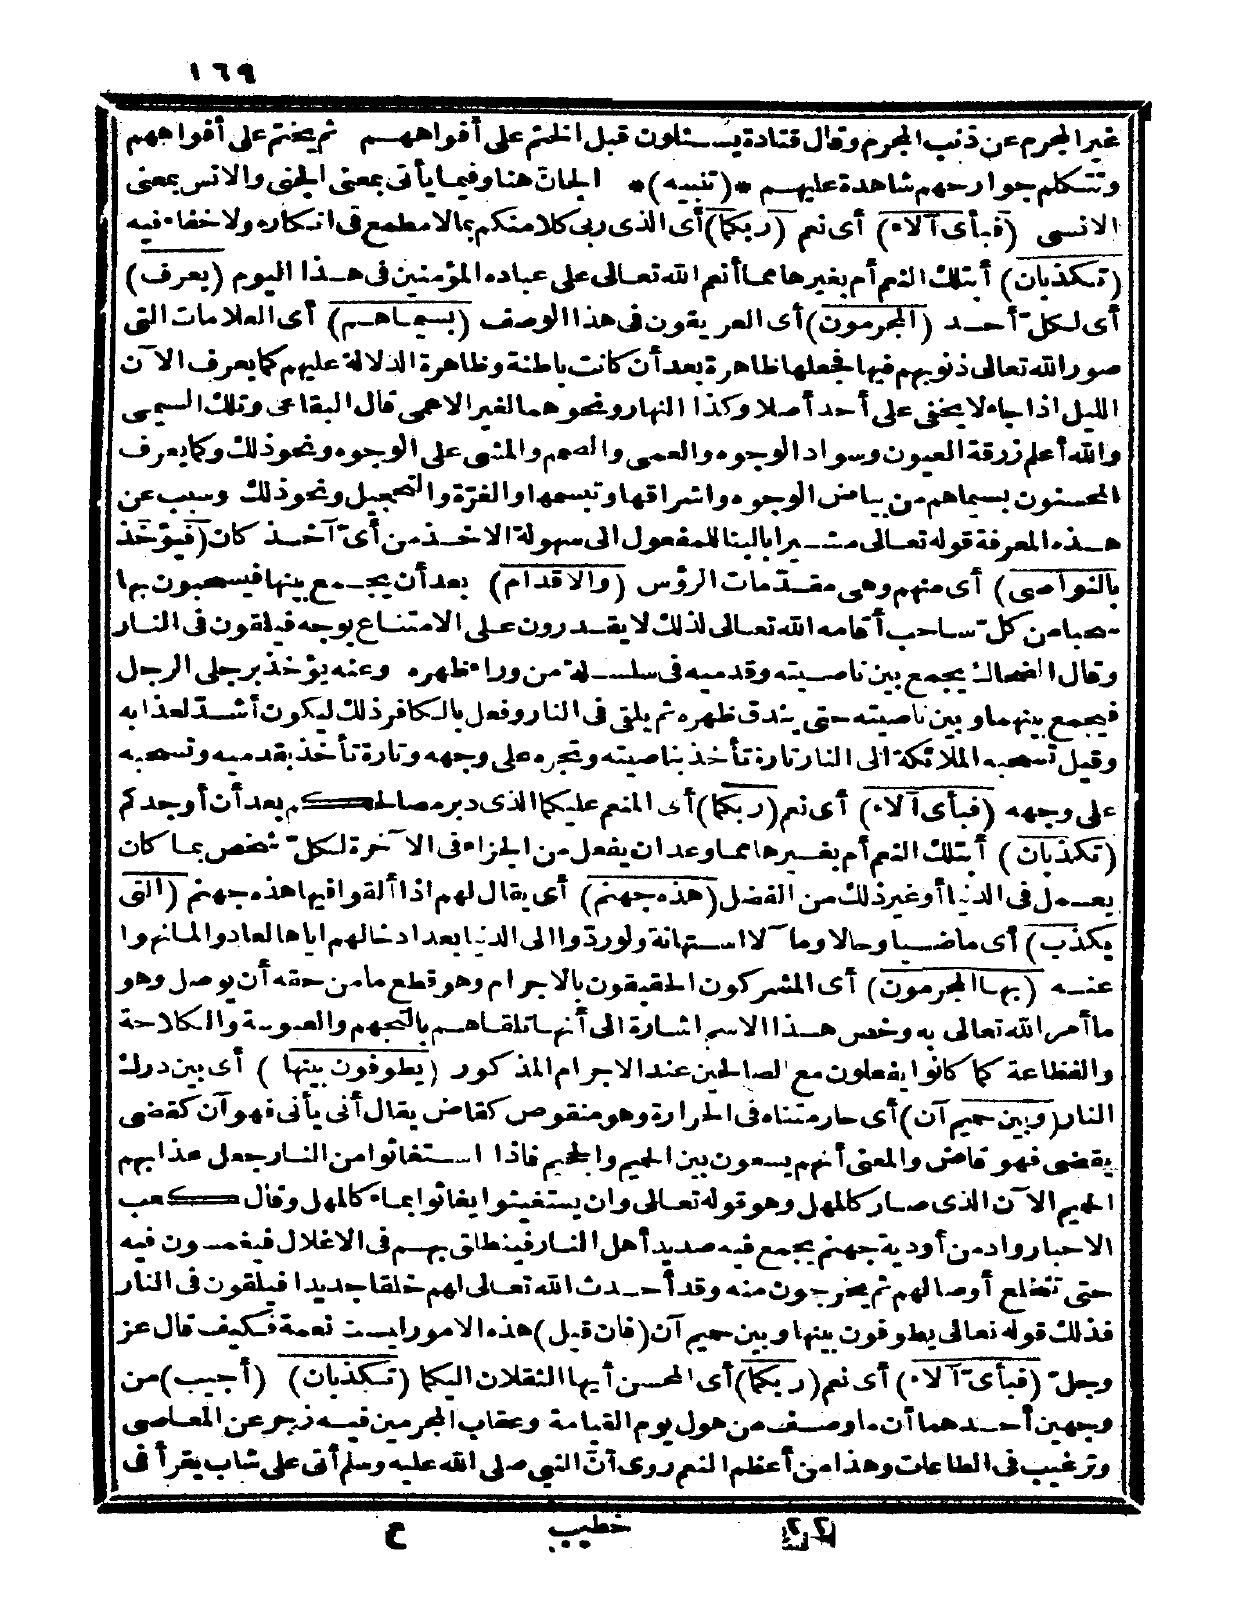 ١٦٩
غير المجرم عن ذنب المجرم وقال قتادة يسئلون قبل الختم على أفواههم ثم يختم على أفواههم
وتتكلم جوارحهم شاهدة عليهم *(تنبيه)* الجانّ هنا وفيما يأتى بمعنى الجنى والانس بمعنى
الانسى (فبأى آلاء) أى نعم (ربكما) أى الذى ربى كلا منكم بما لا مطمع فى انكاره ولا خفاء فيه
(تكذبان) أبتلك النعم أم بغيرها مما أنعم الله تعالى على عباده المؤمنين فى هذا اليوم (يعرف)
أى لكلّ أحد (المجرمون) أى العريقون فى هذا الوصف (بسيماهم) أى العلامات التى
صور الله تعالى ذنوبهم فيها فجعلها ظاهرة بعد أن كانت باطنة وظاهرة الدلالة عليهم كما يعرف الآن
الليل اذا جاء لا يخفى على أحد أصلا وكذا النهار ونحوهما لغير الاعمى قال البقاعى وتلك السيمى
والله أعلم زرقة العيون وسواد الوجوه والعمى والصمم والمشى على الوجوه ونحو ذلك وكما يعرف
المحسنون بسيماهم من بياض الوجوه واشراقها وتبسمها والغرّة والتحجيل ونحو ذلك وسبب عن
هذه المعرفة قوله تعالى مشيرا بالبنا للمفعول الى سهولة الاخذ من أىّ آخذ كان (فيؤخذ
بالنواصى) أى منهم وهى مقدّمات الرؤس (والاقدام) بعد أن يجمع بينها فيسحبون بها
سحبا من كلّ ساحب أقامه الله تعالى لذلك لا يقدرون على الامتناع بوجه فيلقون فى النار
وقال الضحاك يجمع بين ناصيته وقدميه فى سلسلة من وراء ظهره وعنه يؤخذ برجلى الرجل
فيجمع بينهما وبين ناصيته حتى يندق ظهره ثم يلقى فى النار وفعل بالكافر ذلك ليكون أشدّ لعذابه
وقيل تسحبه الملائكة الى النار تارة تأخذ بناصيته وتجره على وجهه وتارة تأخذ بقدميه وتسحبه
على وجهه (فبأى آلاء) أى نعم (ربكما) أى المنعم عليكما الذى دبر مصالحكم بعد أن أوجدكم
(تكذبان) أبتلك النعم أم بغيرها مما وعد ان يفعل من الجزاء فى الآخرة لكلّ شخص بما كان
يعمل فى الدنيا أو غير ذلك من الفضل (هذه جهنم) أى يقال لهم اذا ألقوا فيها هذه جهنم (التى
يكذب) أى ماضيا وحالا ومآلا استهانة ولو ردّوا الى الدنيا بعد ادخالهم اياها لعادوا لما نهوا
عنه (بها المجرمون) أى المشركون الحقيقون بالاجرام وهو قطع ما من حقه أن يوصل وهو
ما أمر الله تعالى به وخص هذا الاسم اشارة الى أنها تلقاهم بالتجهم والعبوسة والكلاحة
والفظاعة كما كانوا يفعلون مع الصالحين عند الاجرام المذكور (يطوفون بينها) أى بين درك
النار (وبين حميم آن) أى حار متناه فى الحرارة وهو منقوص كقاض يقال أنى يأنى فهو آن كقضى
يقضى فهو قاض والمعنى أنهم يسعون بين الحميم والجحيم فاذا استغاثوا من النار جعل عذابهم
الحميم الآن الذى صار كالمهل وهو قوله تعالى وان يستغيثوا يغاثوا بماء كالمهل وقال كعب
الاحبار واد من أودية جهنم يجمع فيه صديد أهل النار فينطلق بهم فى الاغلال فيغمسون فيه
حتى تنخلع أوصالهم ثم يخرجون منه وقد أحدث الله تعالى لهم خلقا جديدا فيلقون فى النار
فذلك قوله تعالى يطوفون بينها وبين حميم آن (فان قيل) هذه الامور ليست نعمة فكيف قال عز
وجلّ (فبأىّ آلاء) أى نعم (ربكما) أى المحسن أيها الثقلان اليكما (تكذبان) (أجيب) من
وجهين أحدهما أن ما وصف من هول يوم القيامة وعقاب المجرمين فيه زجر عن المعاصى
وترغيب فى الطاعات وهذا من أعظم النعم روى أنّ النبى صلى الله عليه وسلم أتى على شاب يقرأ فى
٢٢ خطيب ع